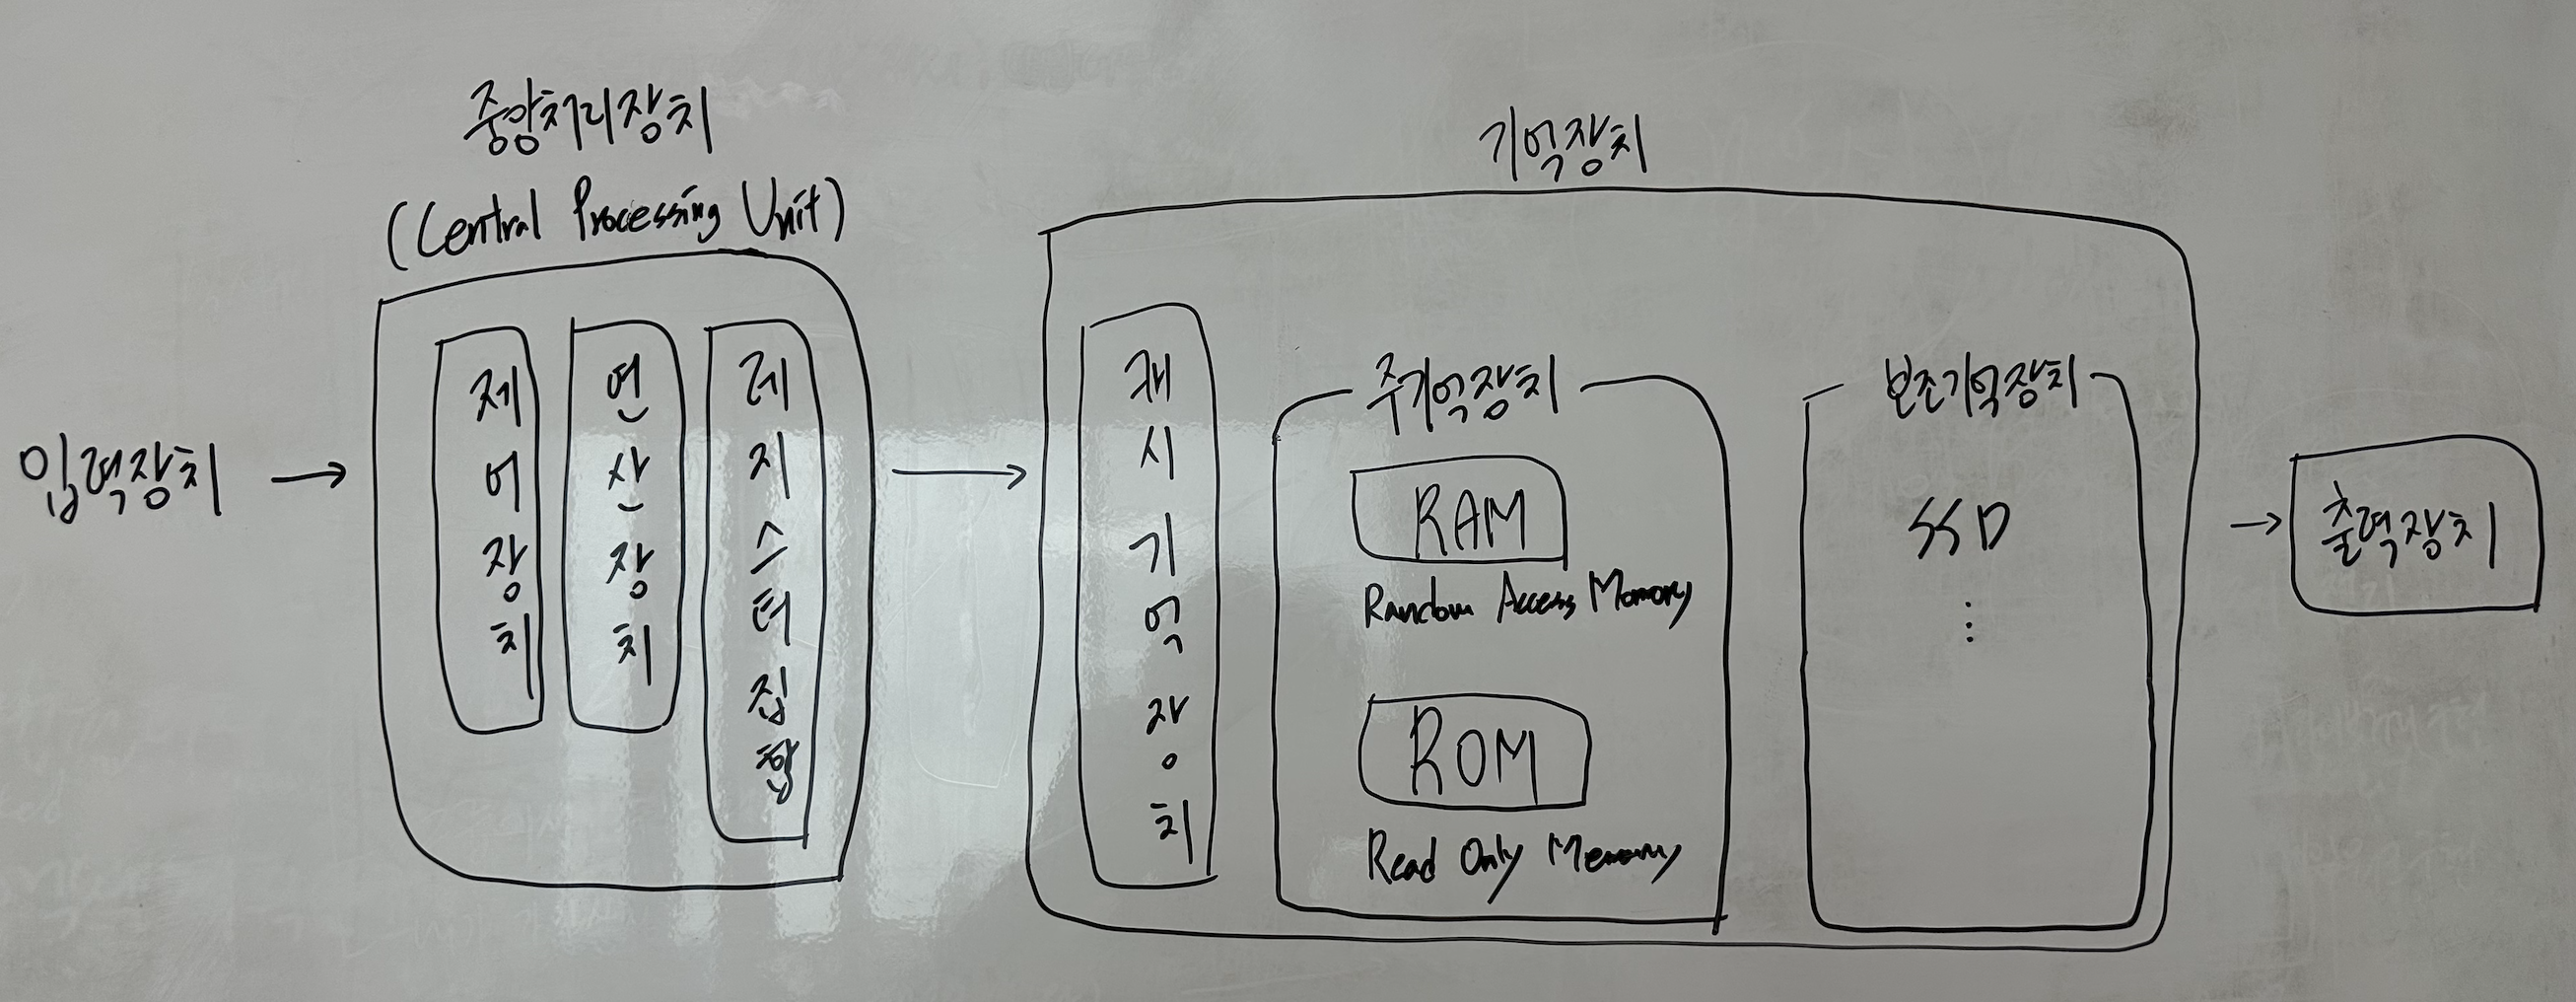 중앙처리장치
(Central Processing Unit)
입력장치
제어장치
연산장치
레지스터집합
기억장치
캐시기억장치
주기억장치
RAM
Random Access Memory
ROM
Read Only Memory
보조기억장치
SSD
⋮
출력장치